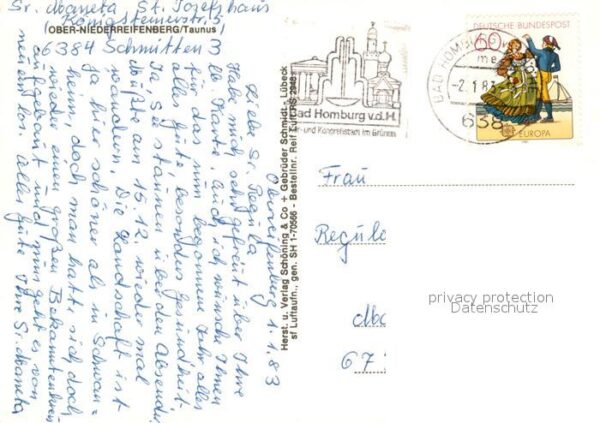 Sr. Maneta, St. Josefshaus
Königsteinerstr. 5
6384 Schmitten 3
OBER-NIEDERREIFENBERG/Taunus
Oberreifenberg 1.1.83
Liebe Sr. Regula
Habe mich sehr gefreut über Ihre
lb. Karte. Auch ich wünsche Ihnen
für das neu begonnene Jahr alles
alles Gute, besonders Gesundheit.
Ja, Sie staunen über den Absender,
dürfte am 15.12. wieder mal
wandern. Die Landschaft ist
ja hier schöner als in Schwan=
heim, doch man hatte sich doch
wieder einen großen Bekanntenkreis
aufgebaut und nun geht es von
neuem. Alles Gute Ihre Sr. Maneta
Herst. u. Verlag Schöning & Co + Gebrüder Schmidt - Lübeck
sf Luftaufn., gen. SH 1-70566 - Bestellnr. Reif
Bad Homburg v.d.H.
Kur- und Kongreßstadt im Grünen
BAD HOMBURG
-2.1.83
638
DEUTSCHE BUNDESPOST
60
EUROPA
Frau
Regula
67
privacy protection
Datenschutz